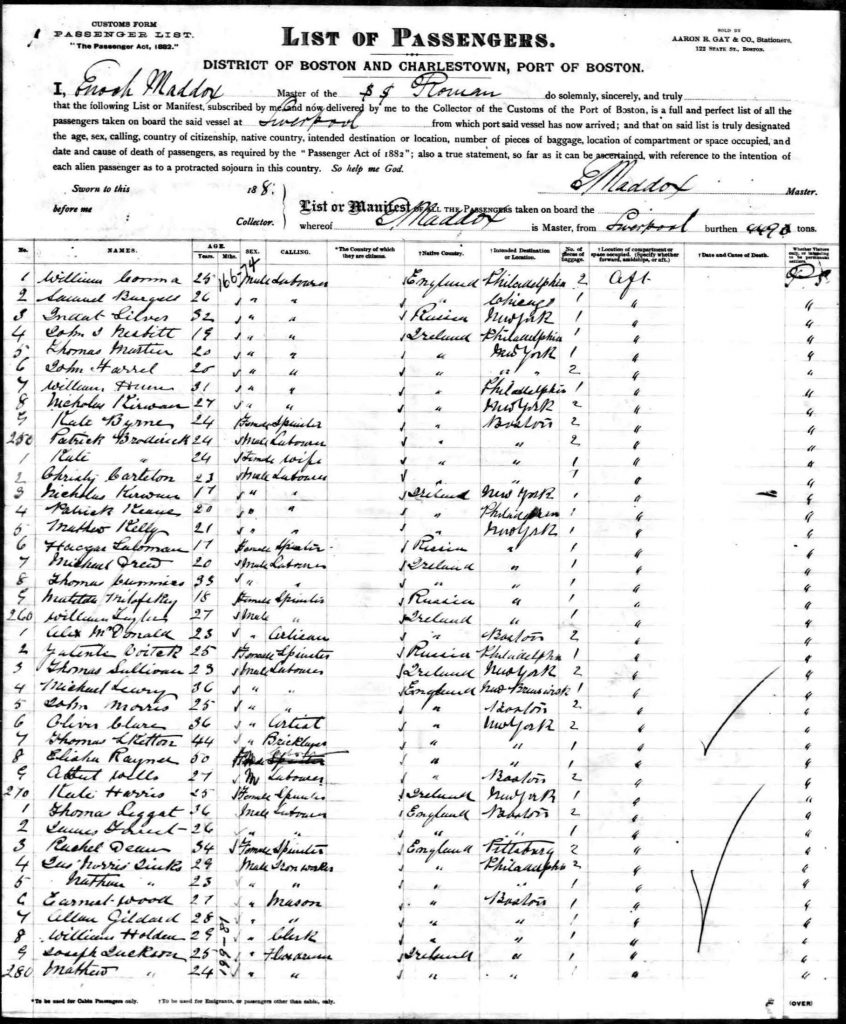 CUSTOMS FORM
PASSENGER LIST.
"The Passenger Act, 1882."
LIST OF PASSENGERS.
SOLD BY
AARON R. GAY & CO., Stationers,
122 STATE ST., BOSTON.
DISTRICT OF BOSTON AND CHARLESTOWN, PORT OF BOSTON.
I, Enoch Maddox Master of the SS Roman do solemnly, sincerely, and truly
that the following List or Manifest, subscribed by me, and now delivered by me to the Collector of the Customs of the Port of Boston, is a full and perfect list of all the
passengers taken on board the said vessel at Liverpool from which port said vessel has now arrived; and that on said list is truly designated
the age, sex, calling, country of citizenship, native country, intended destination or location, number of pieces of baggage, location of compartment or space occupied, and
date and cause of death of passengers, as required by the "Passenger Act of 1882"; also a true statement, so far as it can be ascertained, with reference to the intention of
each alien passenger as to a protracted sojourn in this country. So help me God.
E Maddox Master.
Sworn to this 188
before me Collector.
List or Manifest OF ALL THE PASSENGERS taken on board the
whereof E Maddox is Master, from Liverpool burthen tons.
No. NAMES. AGE. Years. Mths. SEX. CALLING. *The Country of which they are citizens. †Native Country. †Intended Destination or Location. No. of pieces of baggage. †Location of compartment or space occupied. (Specify whether forward, amidships, or aft.) †Date and Cause of Death.
166-74
1 William 25 Male Labourer England Philadelphia 2 Aft
2 Samuel Burgess 26 " " " Chicago 1 "
3 Silver 32 " " Russia New York 1 "
4 John Nesbitt 19 " " Ireland Philadelphia 1 "
5 Thomas Martin 20 " " " New York 1 "
6 John Harrel 20 " " " " " 2 "
7 William 31 " " " Philadelphia 1 "
8 Nicholas Kirwan 27 " " " New York 2 "
9 Kate Byrne 24 Female Spinster " Boston 2 "
250 Patrick Brodrick 24 Male Labourer " " 2 "
Kate " 24 Female Wife " " 1 "
2 Christy Carleton 23 Male Labourer " " 1 "
3 Nicholas Kirwan 17 " " Ireland New York 1 "
4 Patrick Keane 20 " " " Philadelphia 1 "
5 Mathew Kelly 21 " " " New York 1 "
6 17 Female Spinster Russia " 1 "
7 Michael Drew 20 Male Labourer Ireland " 1 "
8 Thomas Cummins 33 " " " " 1 "
9 Matilda 18 Female Spinster Russia " 1 "
260 William 27 Male " Ireland " 1 "
1 Alex McDonald 23 " Artisan " Boston 2 "
2 25 Female Spinster Russia Philadelphia 1 "
3 Thomas Sullivan 23 Male Labourer Ireland New York 2 "
4 Michael 36 " " England New Brunswick 1 "
5 John Morris 25 " " " Boston 2 "
6 Oliver Clare 36 " Artist " New York 2 "
7 Thomas Skitton 44 " Bricklayer " " 1 "
8 Elisha Rayner 50 " " 1 "
9 Wells 27 M Labourer " Boston 2 "
270 Kate Harris 25 Female Spinster Ireland New York 1 "
1 Thomas Leggat 36 Male Labourer England Boston 2 "
2 James 26 " " " " 1 "
3 Rachel Dean 34 Female Spinster England Pittsburg 2 "
4 Jas Norris Jinks 29 Male Ironworker " Philadelphia 2 "
5 Nathan " 23 " " " " 1 "
6 Earnest Wood 27 " Mason " Boston 1 "
7 Allan Gildard 28 " " " " 1 "
8 William Holden 29 " Clerk " " 1 "
9 Joseph Jackson 25 " Ireland " 1 "
280 Mathew " 24 " " " " 1 "
199-81
*To be used for Cabin Passengers only. †To be used for Emigrants, or passengers other than cabin, only. (OVER)